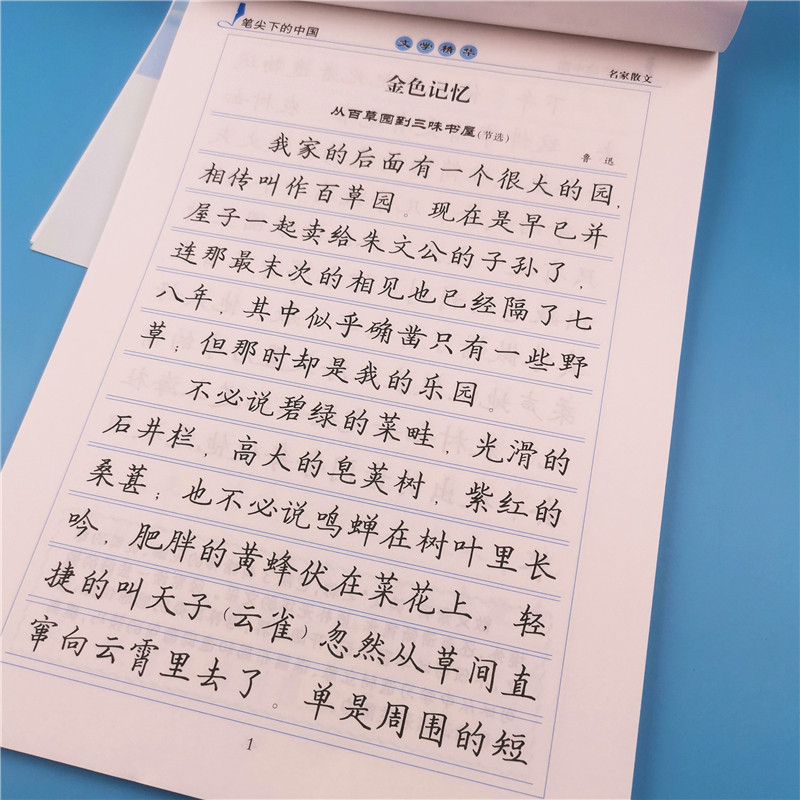 笔尖下的中国
文学精华
名家散文
金色记忆
从百草园到三味书屋(节选)
鲁迅
我家的后面有一个很大的园,
相传叫作百草园。现在是早已并
屋子一起卖给朱文公的子孙了,
连那最末次的相见也已经隔了七
八年,其中似乎确凿只有一些野
草;但那时却是我的乐园。
不必说碧绿的菜畦,光滑的
石井栏,高大的皂荚树,紫红的
桑葚;也不必说鸣蝉在树叶里长
吟,肥胖的黄蜂伏在菜花上,轻
捷的叫天子(云雀)忽然从草间直
窜向云霄里去了。单是周围的短
1